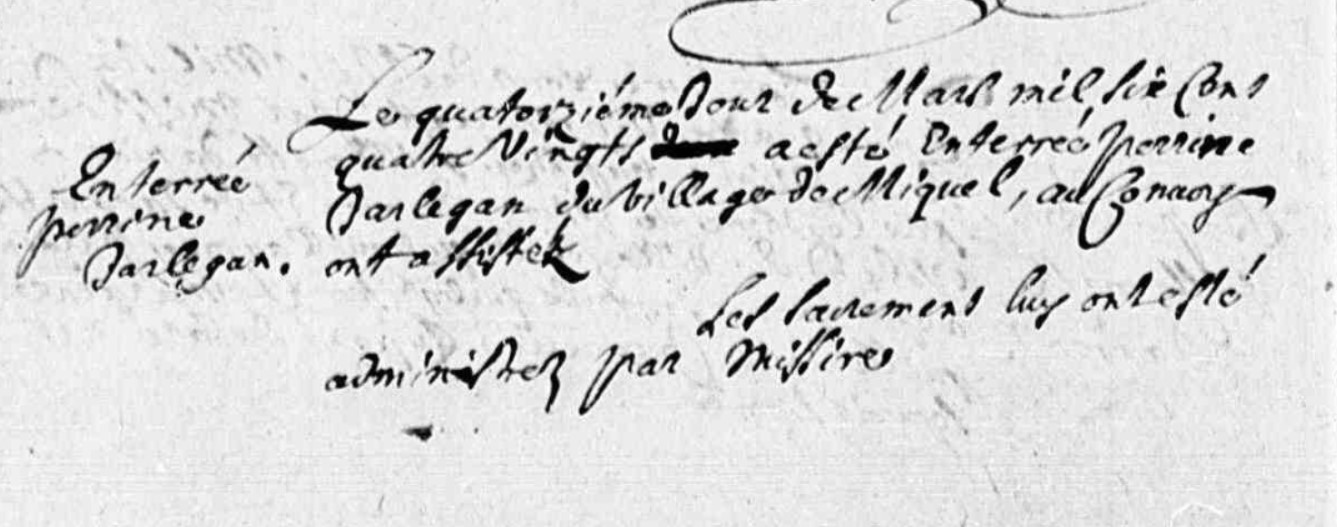 Le quatorziéme Jour de Mars mil, six Cent
quatre Vingts a esté Enterrée perrine
Jarlegan du village de Miquel, au Conuoy
ont assistez
Les sacrement luy ont esté
administrez par Missire
Enterrée
perrine
Jarlegan.